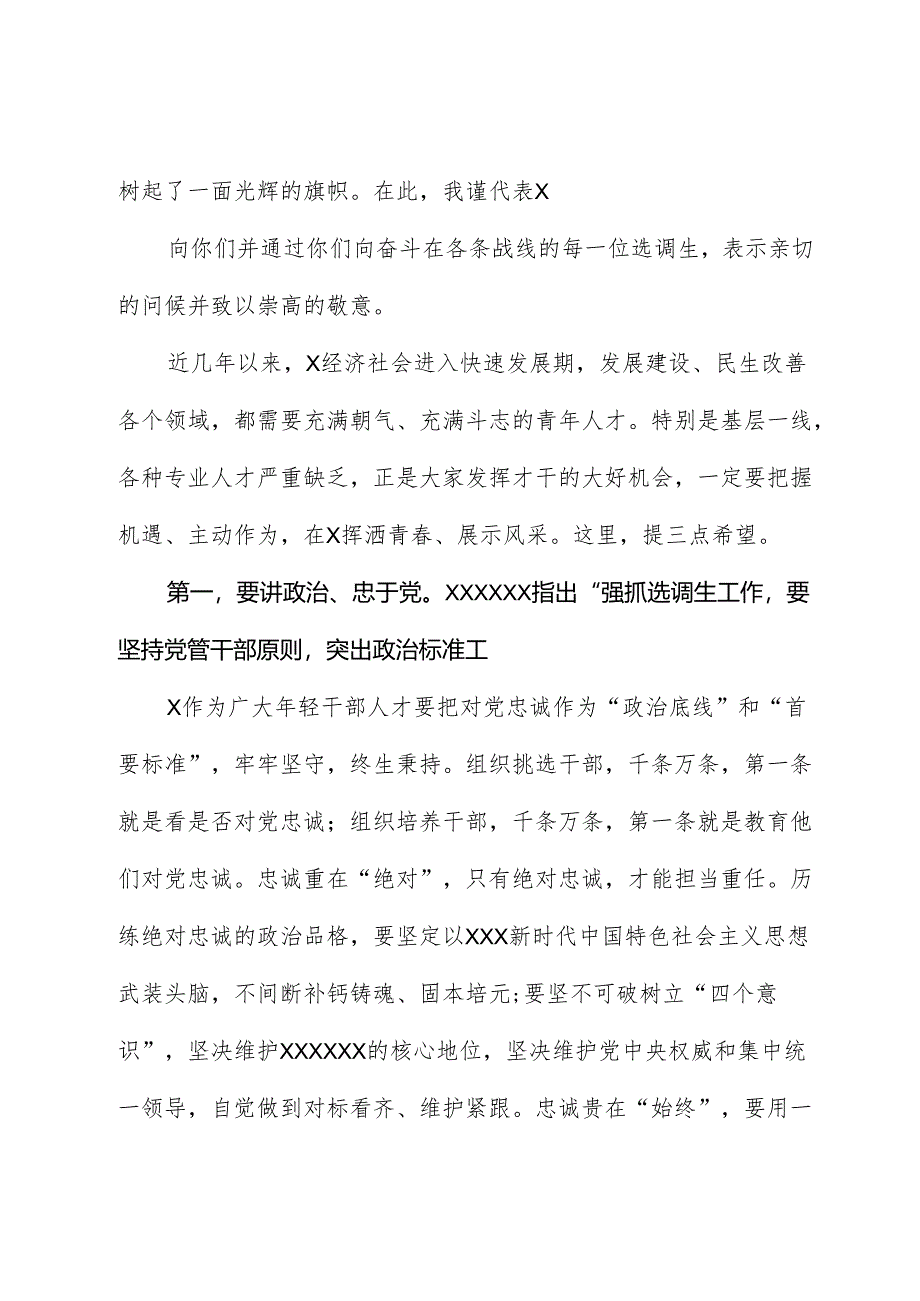 树起了一面光辉的旗帜。在此，我谨代表X
向你们并通过你们向奋斗在各条战线的每一位选调生，表示亲切
的问候并致以崇高的敬意。
近几年以来，X经济社会进入快速发展期，发展建设、民生改善
各个领域，都需要充满朝气、充满斗志的青年人才。特别是基层一线，
各种专业人才严重缺乏，正是大家发挥才干的大好机会，一定要把握
机遇、主动作为，在X挥洒青春、展示风采。这里，提三点希望。
第一，要讲政治、忠于党。XXXXXX指出“强抓选调生工作，要
坚持党管干部原则，突出政治标准工
X作为广大年轻干部人才要把对党忠诚作为“政治底线”和“首
要标准”，牢牢坚守，终生秉持。组织挑选干部，千条万条，第一条
就是看是否对党忠诚；组织培养干部，千条万条，第一条就是教育他
们对党忠诚。忠诚重在“绝对”，只有绝对忠诚，才能担当重任。历
练绝对忠诚的政治品格，要坚定以XXX新时代中国特色社会主义思想
武装头脑，不间断补钙铸魂、固本培元;要坚不可破树立“四个意
识”，坚决维护XXXXXX的核心地位，坚决维护党中央权威和集中统
一领导，自觉做到对标看齐、维护紧跟。忠诚贵在“始终”，要用一